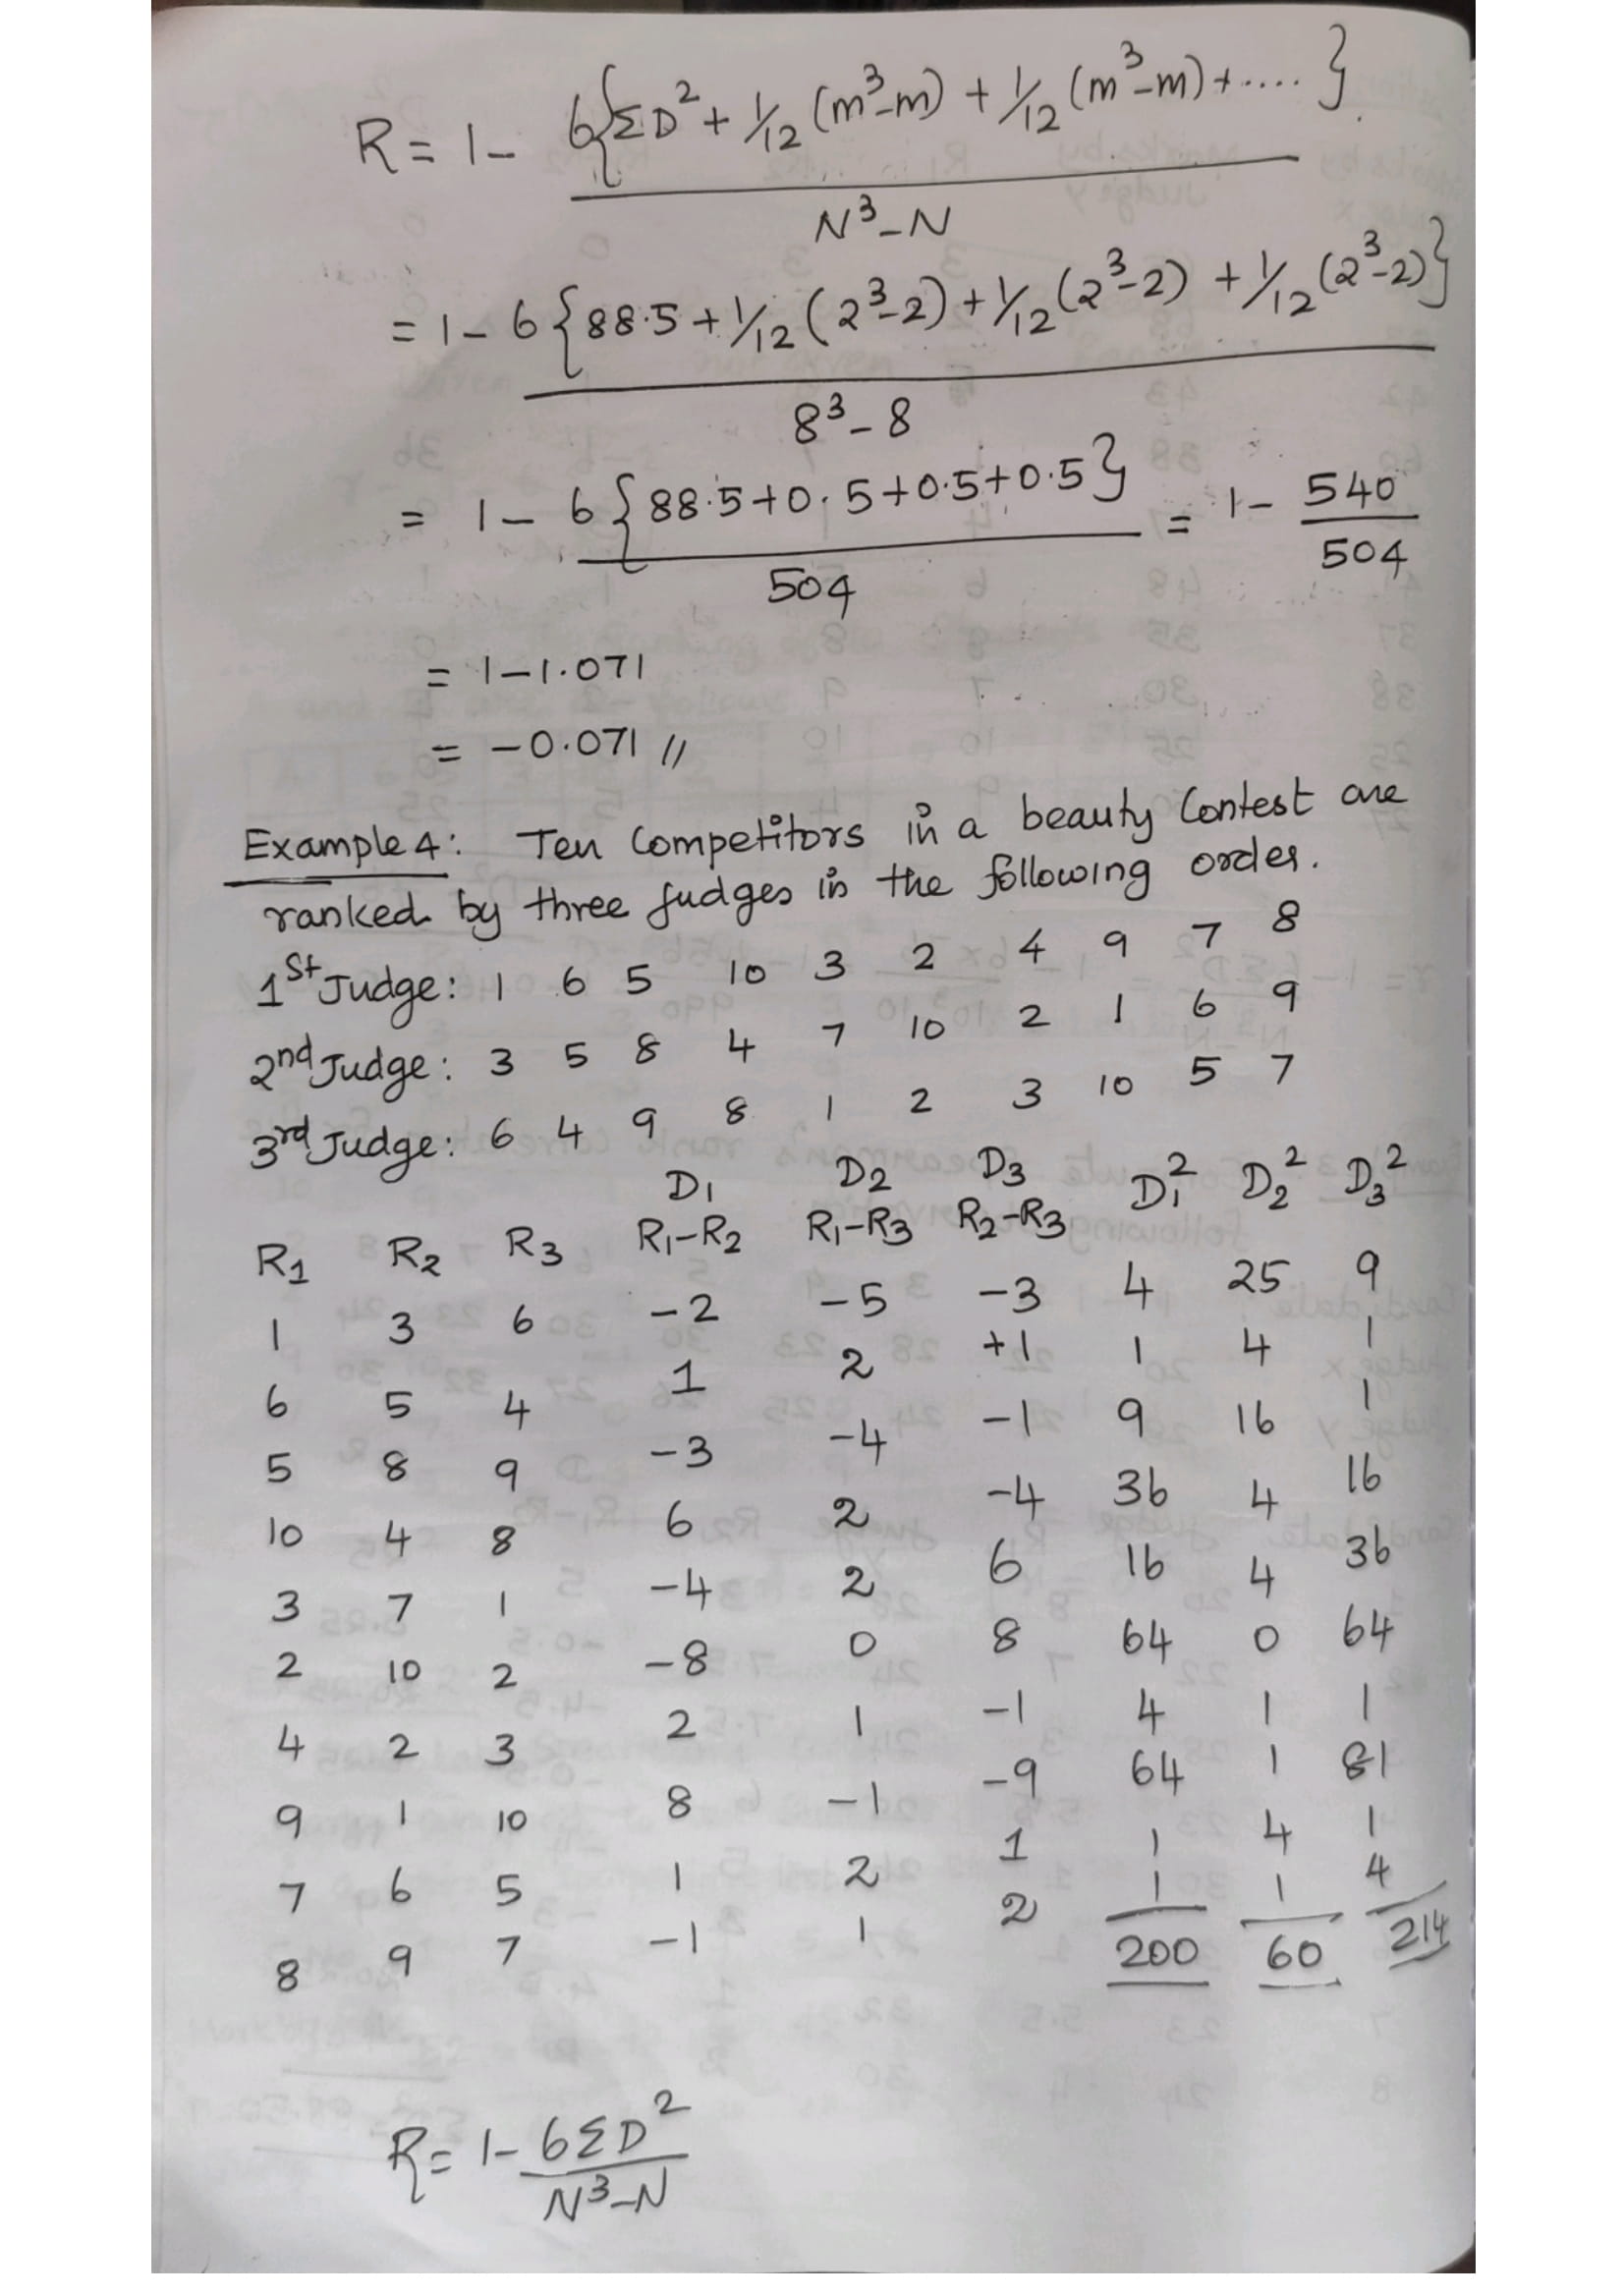 R = 1 - 6{ΣD² + 1/12 (m³-m) + 1/12 (m³-m) + .... }
N³-N
= 1 - 6{88.5 + 1/12 (2³-2) + 1/12 (2³-2) + 1/12 (2³-2)}
8³-8
= 1 - 6{88.5+0.5+0.5+0.5} = 1 - 540
504 504
= 1-1.071
= -0.071 //
Example 4: Ten Competitors in a beauty Contest are
ranked by three Judges in the following order.
1st Judge: 1 6 5 10 3 2 4 9 7 8
2nd Judge: 3 5 8 4 7 10 2 1 6 9
3rd Judge: 6 4 9 8 1 2 3 10 5 7
D1 D2 D3
R1 R2 R3 R1-R2 R1-R3 R2-R3 D1² D2² D3²
1 3 6 -2 -5 -3 4 25 9
6 5 4 1 2 +1 1 4 1
5 8 9 -3 -4 -1 9 16 1
10 4 8 6 2 -4 36 4 16
3 7 1 -4 2 6 16 4 36
2 10 2 -8 0 8 64 0 64
4 2 3 2 1 -1 4 1 1
9 1 10 8 -1 -9 64 1 81
7 6 5 1 2 1 1 4 1
8 9 7 -1 1 2 1 1 4
200 60 214
R = 1 - 6ΣD²
N³-N